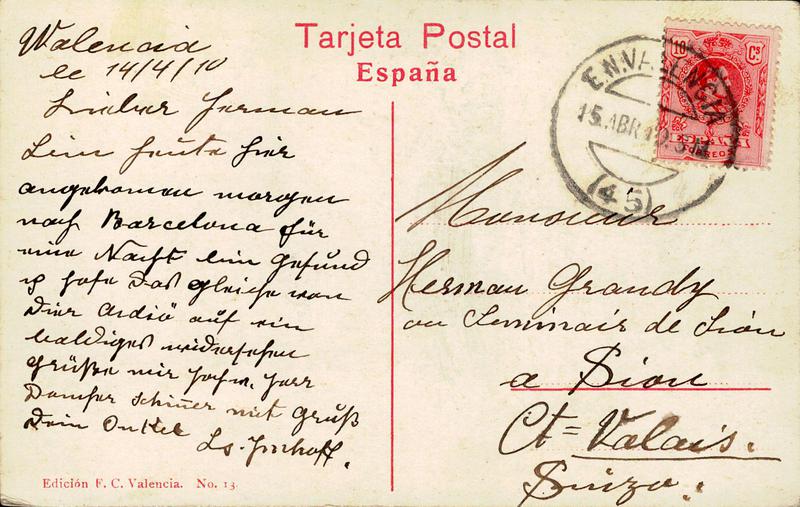 Tarjeta Postal
España
Walencia
le 14/4/10
Lieber Herman
bin heute hier
angekoman morgen
nach Barcelona für
eine Nacht bin gesund
ich hofe das gleiche von
Dier Adiö auf ein
baldiges widersehen
grüße mir Hochw. Herr
Domher Schiner mit Gruß
Dein Onkel Ls. Imhoff.
Edición F. C. Valencia. No. 13.
10 Cs
ESPAÑA
CORREOS
E.N. VALENCIA
15. ABR 10. 5M
(45)
Monsieur
Herman Grandy
au Seminair de Sion
a Sion
Ct = Valais.
Suiza.